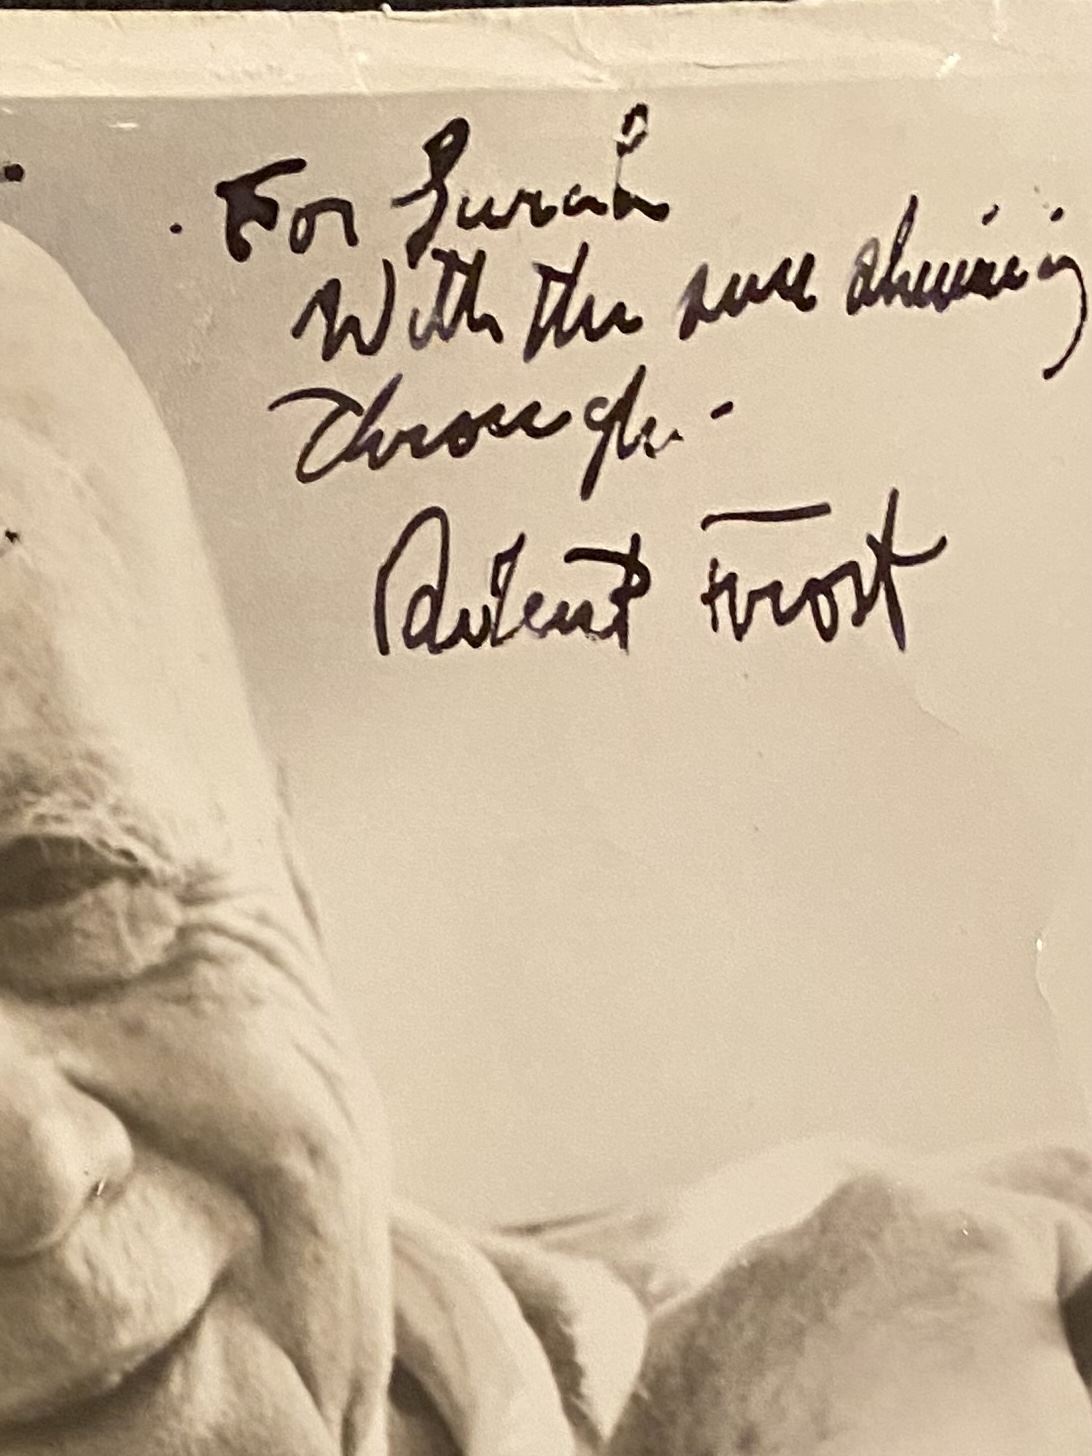 For
With the sun shining
Through -
Robert Frost